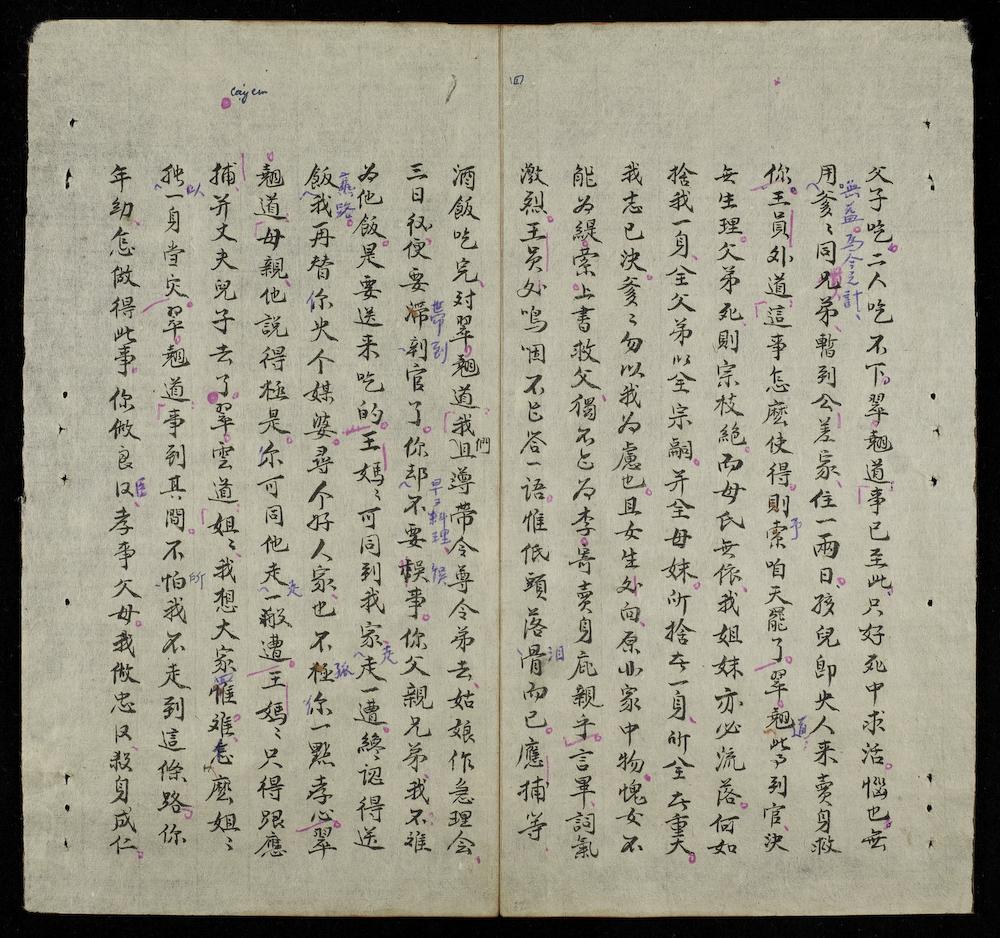 父子吃二人吃不下翠翹道事已至此只好死中求活惱也無
用爹〻同兄弟暫到公差家住一兩日孩兒即央人来賣身救
你王員外道這事怎麽使得則索咱天罷了翠翹道此事到官決
無生理父弟死則宗枝絶而母氏無依我姐妹亦必流落何如
捨我一身全父弟以全宗嗣并全母妹所捨在一身所全在重大
我志已决爹〻勿以我為慮也且女生外向原非家中物愧女不
能為緹縈上書救父獨不乞為李寄賣身庇親乎言畢詞氣
激烈王員外嗚咽不乞答一語惟低頭落淚而已應捕等
酒飯吃完对翠翹道我們且尊帶令尊令弟去姑娘作急理会
三日後便要帶到官了你却不要悮事你父親兄弟我不难
為他飯是要送来吃的王媽〻可同到我家走一遭終認得送
飯我再替你央个媒婆尋个好人家也不極你一點孝心翠
翹道母親他説得極是你可同他走一遭王媽〻只得跟應
捕并丈夫兒子去了翠雲道姐〻我想大家惟难怎麽姐〻
独一身當灾翠翹道事到其間不怕我不走到這條路你
年幼怎做得此事你做良臣孝事父母我做忠臣殺身成仁
無益為今之計
舊路
早〻料理
cây em
四